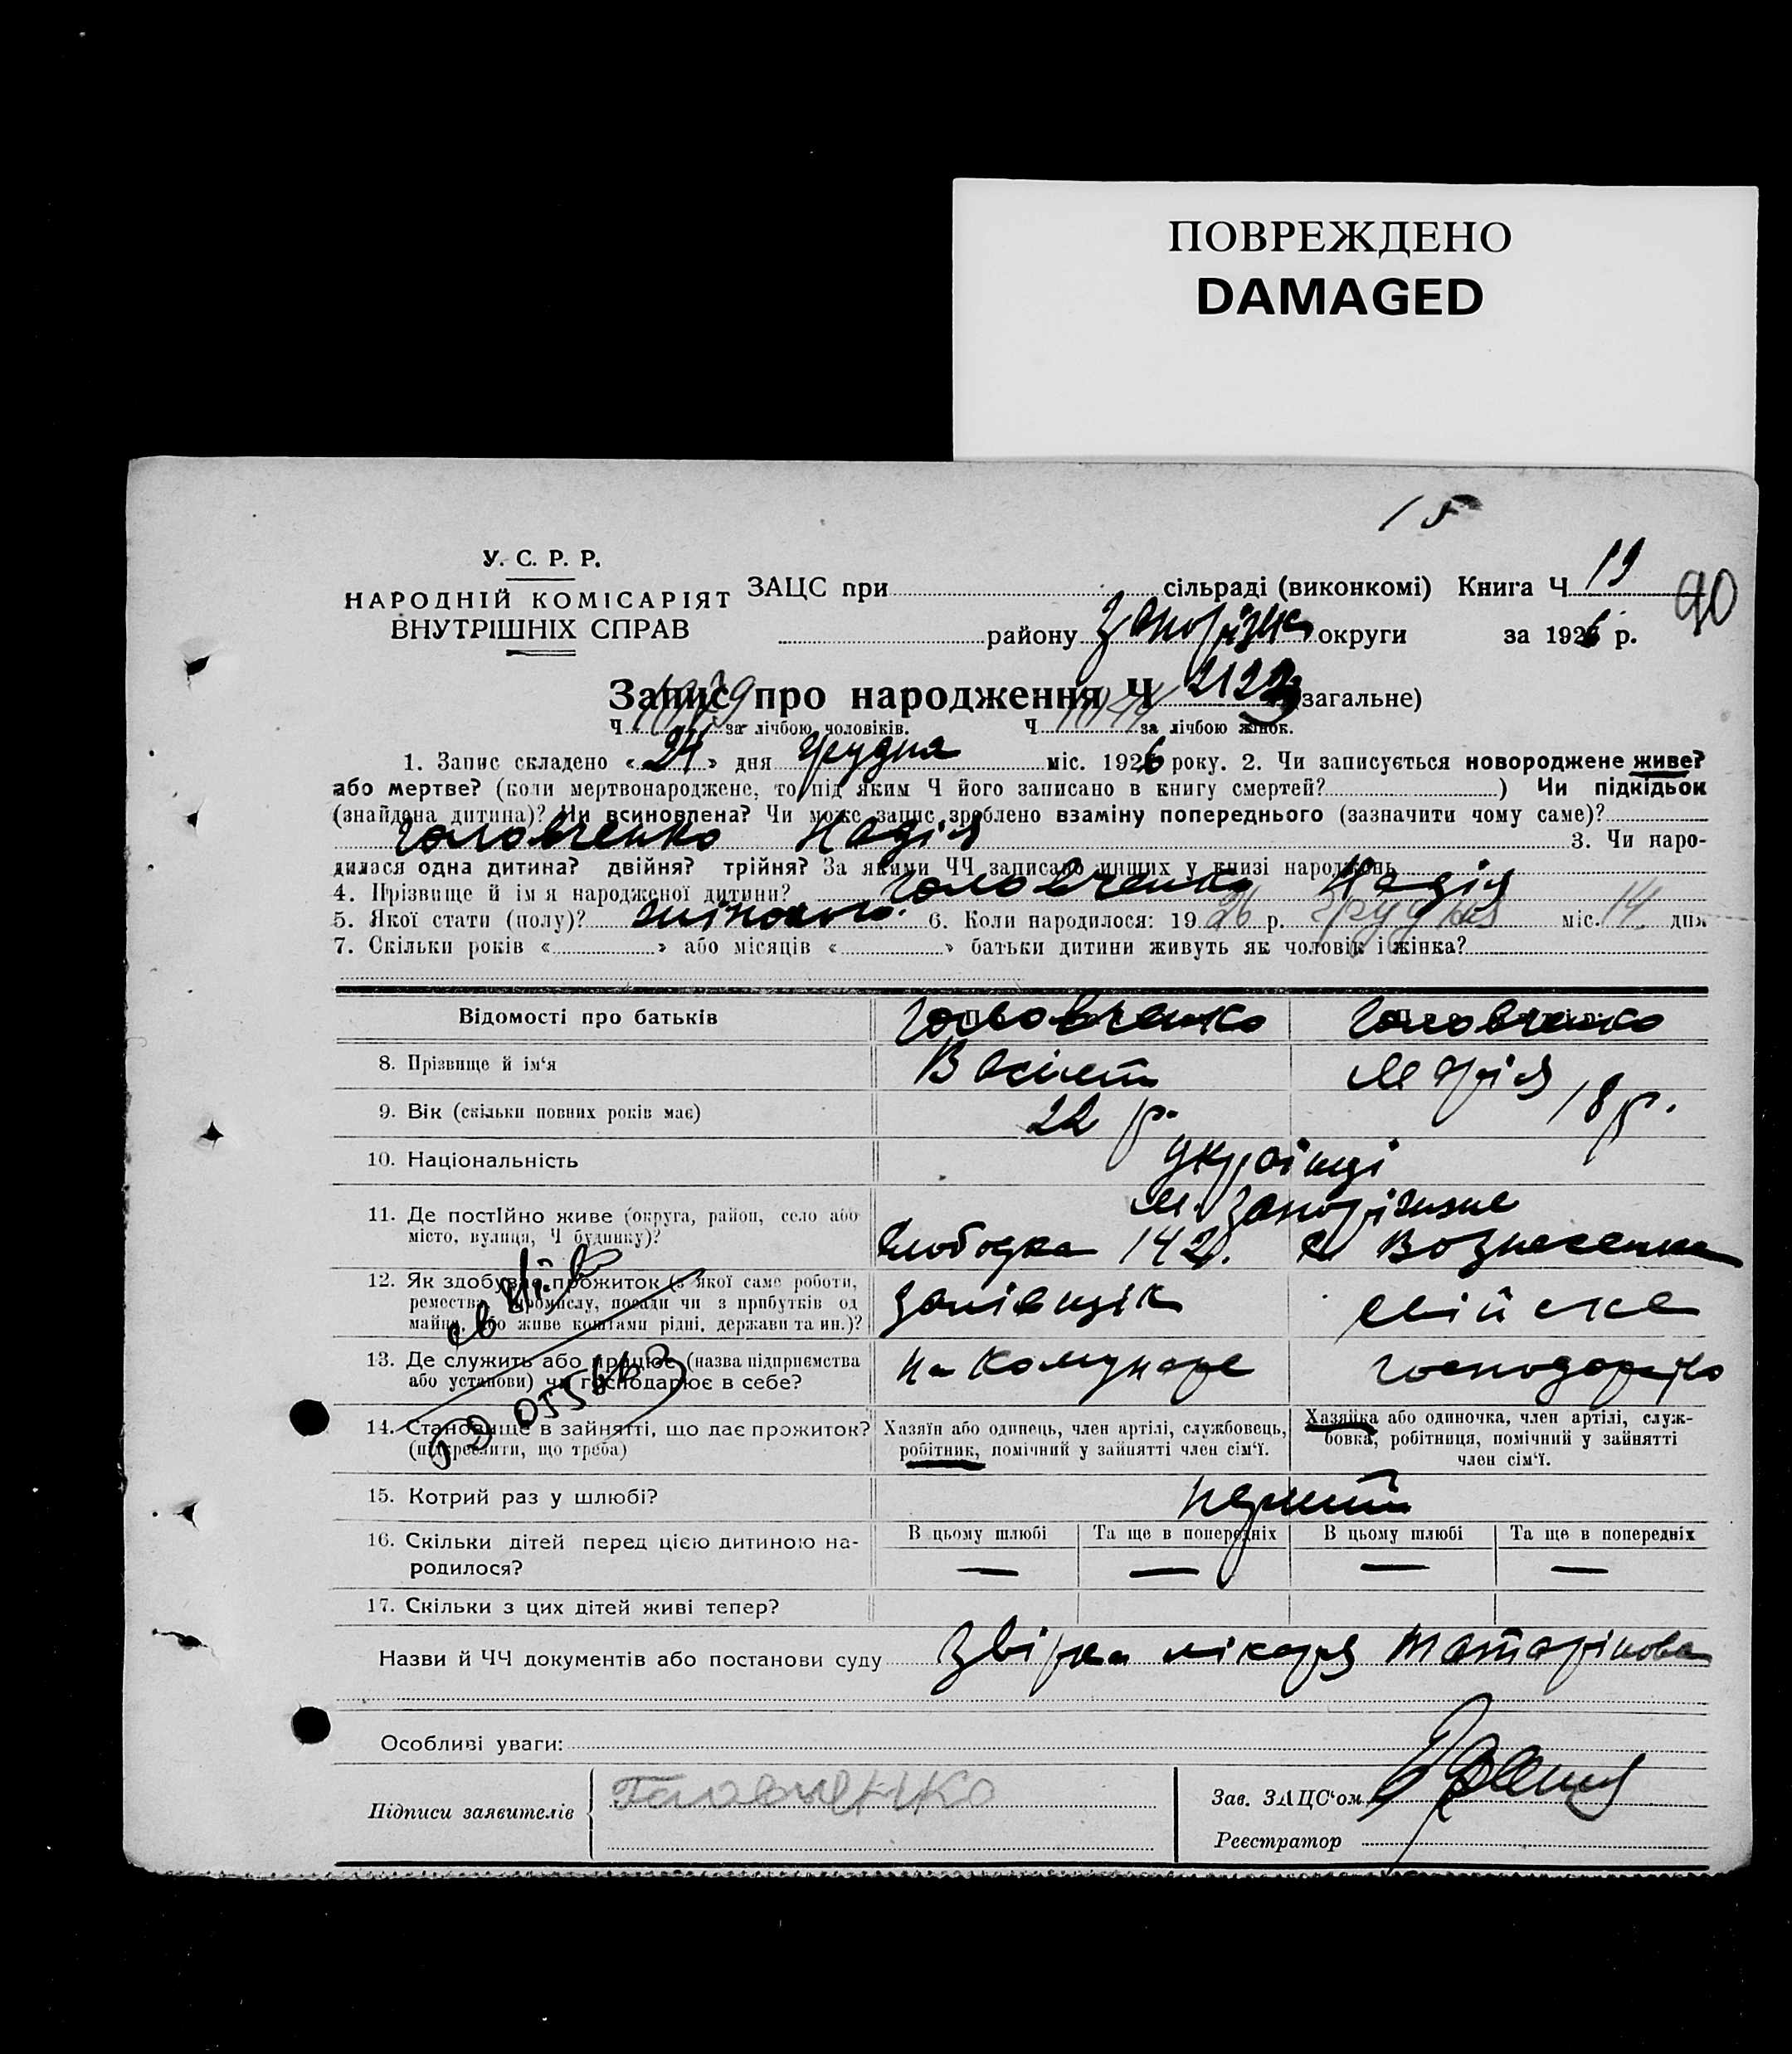 ПОВРЕЖДЕНО
DAMAGED
У. С. Р. Р.
НАРОДНІЙ КОМІСАРІЯТ
ВНУТРІШНІХ СПРАВ
ЗАЦС при сільраді (виконкомі) Книга Ч 19
90
району Запоріжк округи за 1926 р.
Запис про народження Ч 2123 (загальне)
Ч 1079 за лічбою чоловіків. Ч 1044 за лічбою жінок.
1. Запис складено « 24 » дня грудня міс. 1926 року. 2. Чи записується новороджене живе?
або мертве? (коли мертвонароджене, то під яким Ч його записано в книгу смертей? ) Чи підкідьок
(знайдена дитина)? Чи всиновлена? Чи може запис зроблено взаміну попереднього (зазначити чому саме)?
Головченко Надія 3. Чи наро-
дилася одна дитина? двійня? трійня? За якими ЧЧ записано инших у книзі народжень
4. Прізвище й ім я народженої дитини? Головченко Надія
5. Якої стати (полу)? жіночого. 6. Коли народилося: 1926 р. грудня міс. 14 дня
7. Скільки років « » або місяців « » батьки дитини живуть як чоловік і жінка?
Відомості про батьків Головченко Головченко
8. Прізвище й ім‘я Васілет Марія
9. Вік (скільки повних років має) 22 р. 18 р.
10. Національність українці
11. Де постІйно живе (округа, район, село або м. Запоріжжє
місто, вулиця, Ч будинку)? Слободка 142 с. Вознесенка
12. Як здобуває прожиток (з якої саме роботи,
ремества, промислу, посади чи з прибутків од
майна, або живе коштами рідні, держави та ин.)?
13. Де служить або працює (назва підприємства на Комунаре господарство
або установи) чи господарює в себе?
14. Становище в зайнятті, що дає прожиток?
(підкреслити, що треба)
Хазяїн або одинець, член артілі, службовець,
робітник, помічний у зайнятті член сім‘ї.
Хазяйка або одиночка, член артілі, служ-
бовка, робітниця, помічний у зайнятті
член сім‘ї.
15. Котрий раз у шлюбі? перший
16. Скільки дітей перед цією дитиною на-
родилося?
В цьому шлюбі Та ще в попередніх В цьому шлюбі Та ще в попередніх
— — — —
17. Скільки з цих дітей живі тепер?
Назви й ЧЧ документів або постанови суду лікаря Татарінова
Особливі уваги:
Підписи заявителів Головченко
Зав. ЗАЦС‘ом
Реєстратор